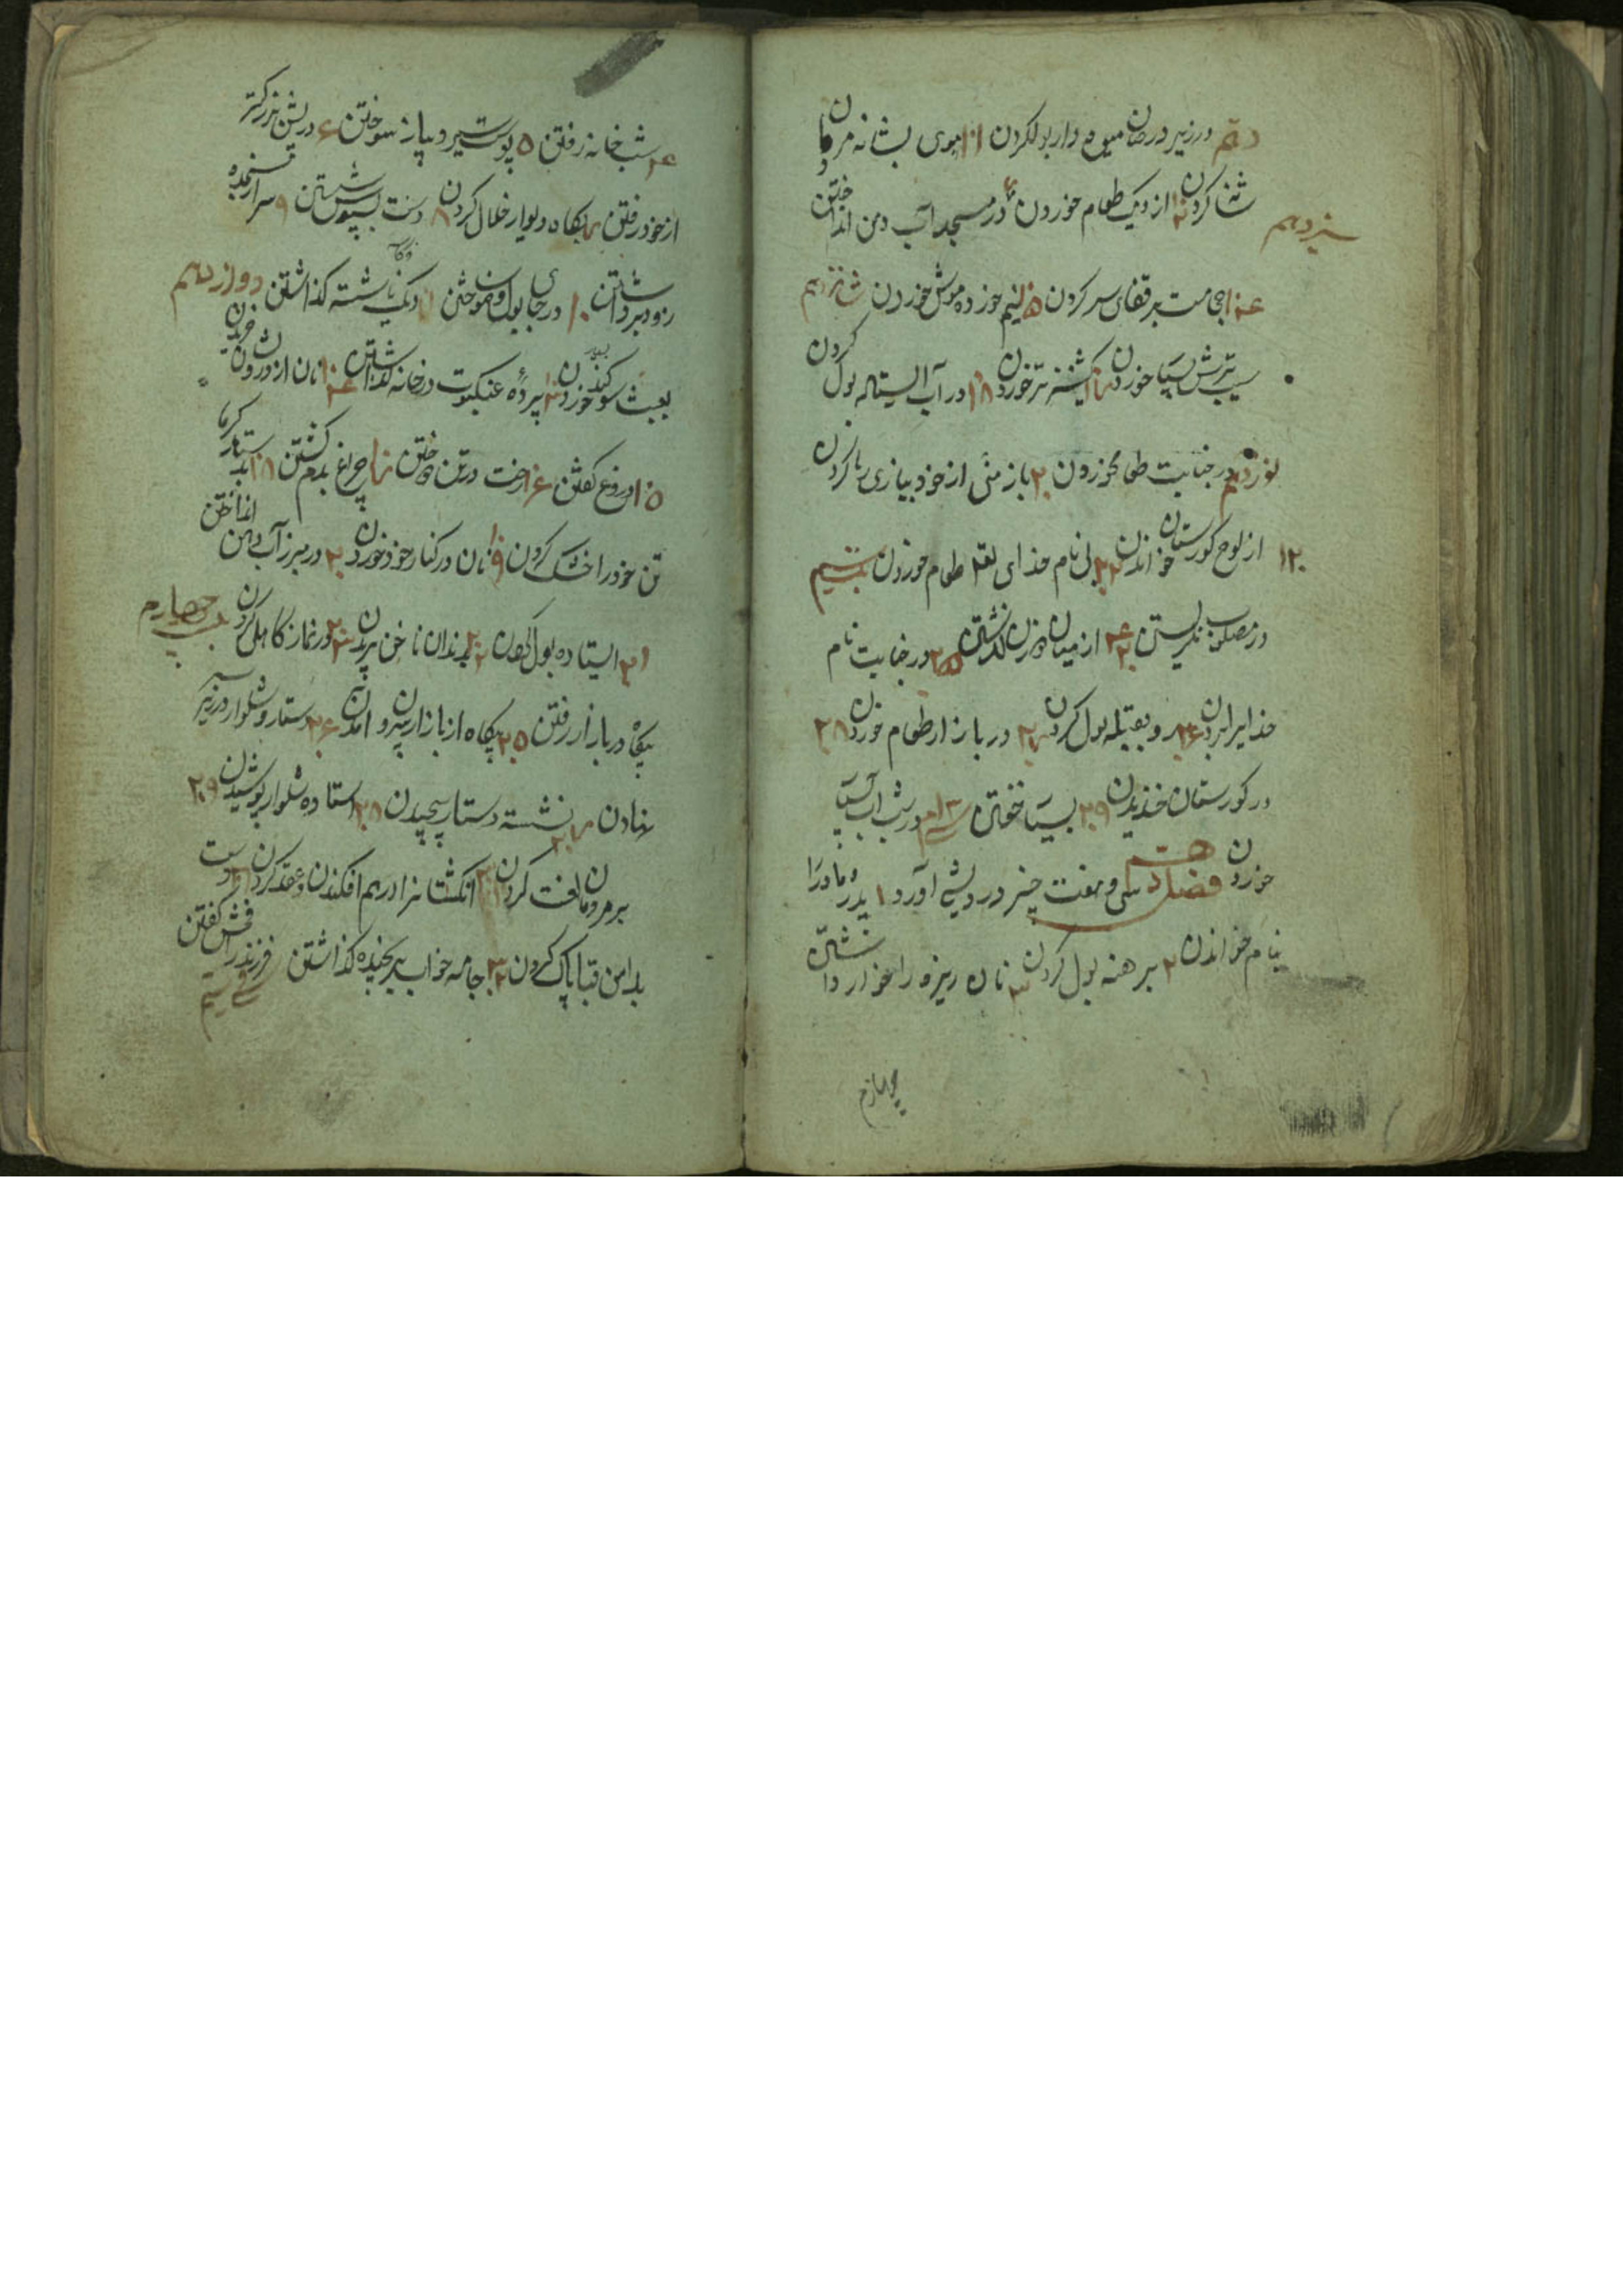 دهم در زیر درختان میوه دار بول کردن ۱۱ موی بشانه مردمان
شانه کردن ۱۲ از دیک طعام خوردن در مسجد آب دهن انداختن
سیزدهم
۱۴ حجامت بر قفای سر کردن ۱۵ نیم خورده موش خوردن شانزدهم
سیب ترش بسیار خوردن ۱۷ کشنیز تر خوردن ۱۸ در آب ایستاده بول کردن
نوزدهم در جنابت طعام خوردن ۲۰ باز منی از خود ببازی رها کردن
از لوح کورستان خواندن ۲۲ بی نام خدای لقمه طعام خوردن
در مصلوب نکریستن ۲۴ از میان دو زن کذشتن ۲۵ در جنابت نام
خدایرا بردن ۲۶ رو بقبله بول کردن ۲۷ در بازار طعام خوردن ۲۸
در کورستان خندیدن ۲۹ بسیار خفتن ۳۰ در شب آب بسیار
خوردن فصل در سی و هفت چیز درویشی آورد ۱ پدر و مادر را
بنام خواندن ۲ برهنه بول کردن ۳ نان ریزه را خوار داشتن
چهارم
۴ شب خانه رفتن ۵ پوست سیر و پیاز سوختن ۶ در پیش بزرکتر
از خود رفتن ۷ بکاه دیوار خلال کردن ۸ دست بسبوس شستن ۹ سر از سجده
زود برداشتن ۱۰ در جای بول وضو ساختن ۱۱ دیک ناشسته کذاشتن دوازدهم
بعبث سوکند خوردن ۱۳ پرده عنکبوت در خانه کذاشتن ۱۴ نان از درویشان خریدن
۱۵ دروغ کفتن ۱۶ رخت در تن دوختن ۱۷ چراغ بدم کشتن ۱۸ بدستار کرما
تن خود را خشک کردن ۱۹ نان در کنار خود خوردن ۲۰ در مبرز آب دهن انداختن
۲۱ ایستاده بول کردن ۲۲ بدندان ناخن بریدن ۲۳ در نماز کاهلی کردن بیست چهارم
پکاه در بازار رفتن ۲۵ پیکاه از بازار بیرون آمدن ۲۶ دستار و شلوار در زیر سر
نهادن ۲۷ نشسته دستار پیچیدن ۲۸ استاده شلوار پوشیدن ۲۹
بر مردمان لعنت کردن ۳۰ انکشتانرا درهم افکندن و عقد کردن ۳۱ دست
بدامن قبا پاک کردن ۳۲ جامه خواب بر نچیده کذاشتن فرزند را فحش کفتن